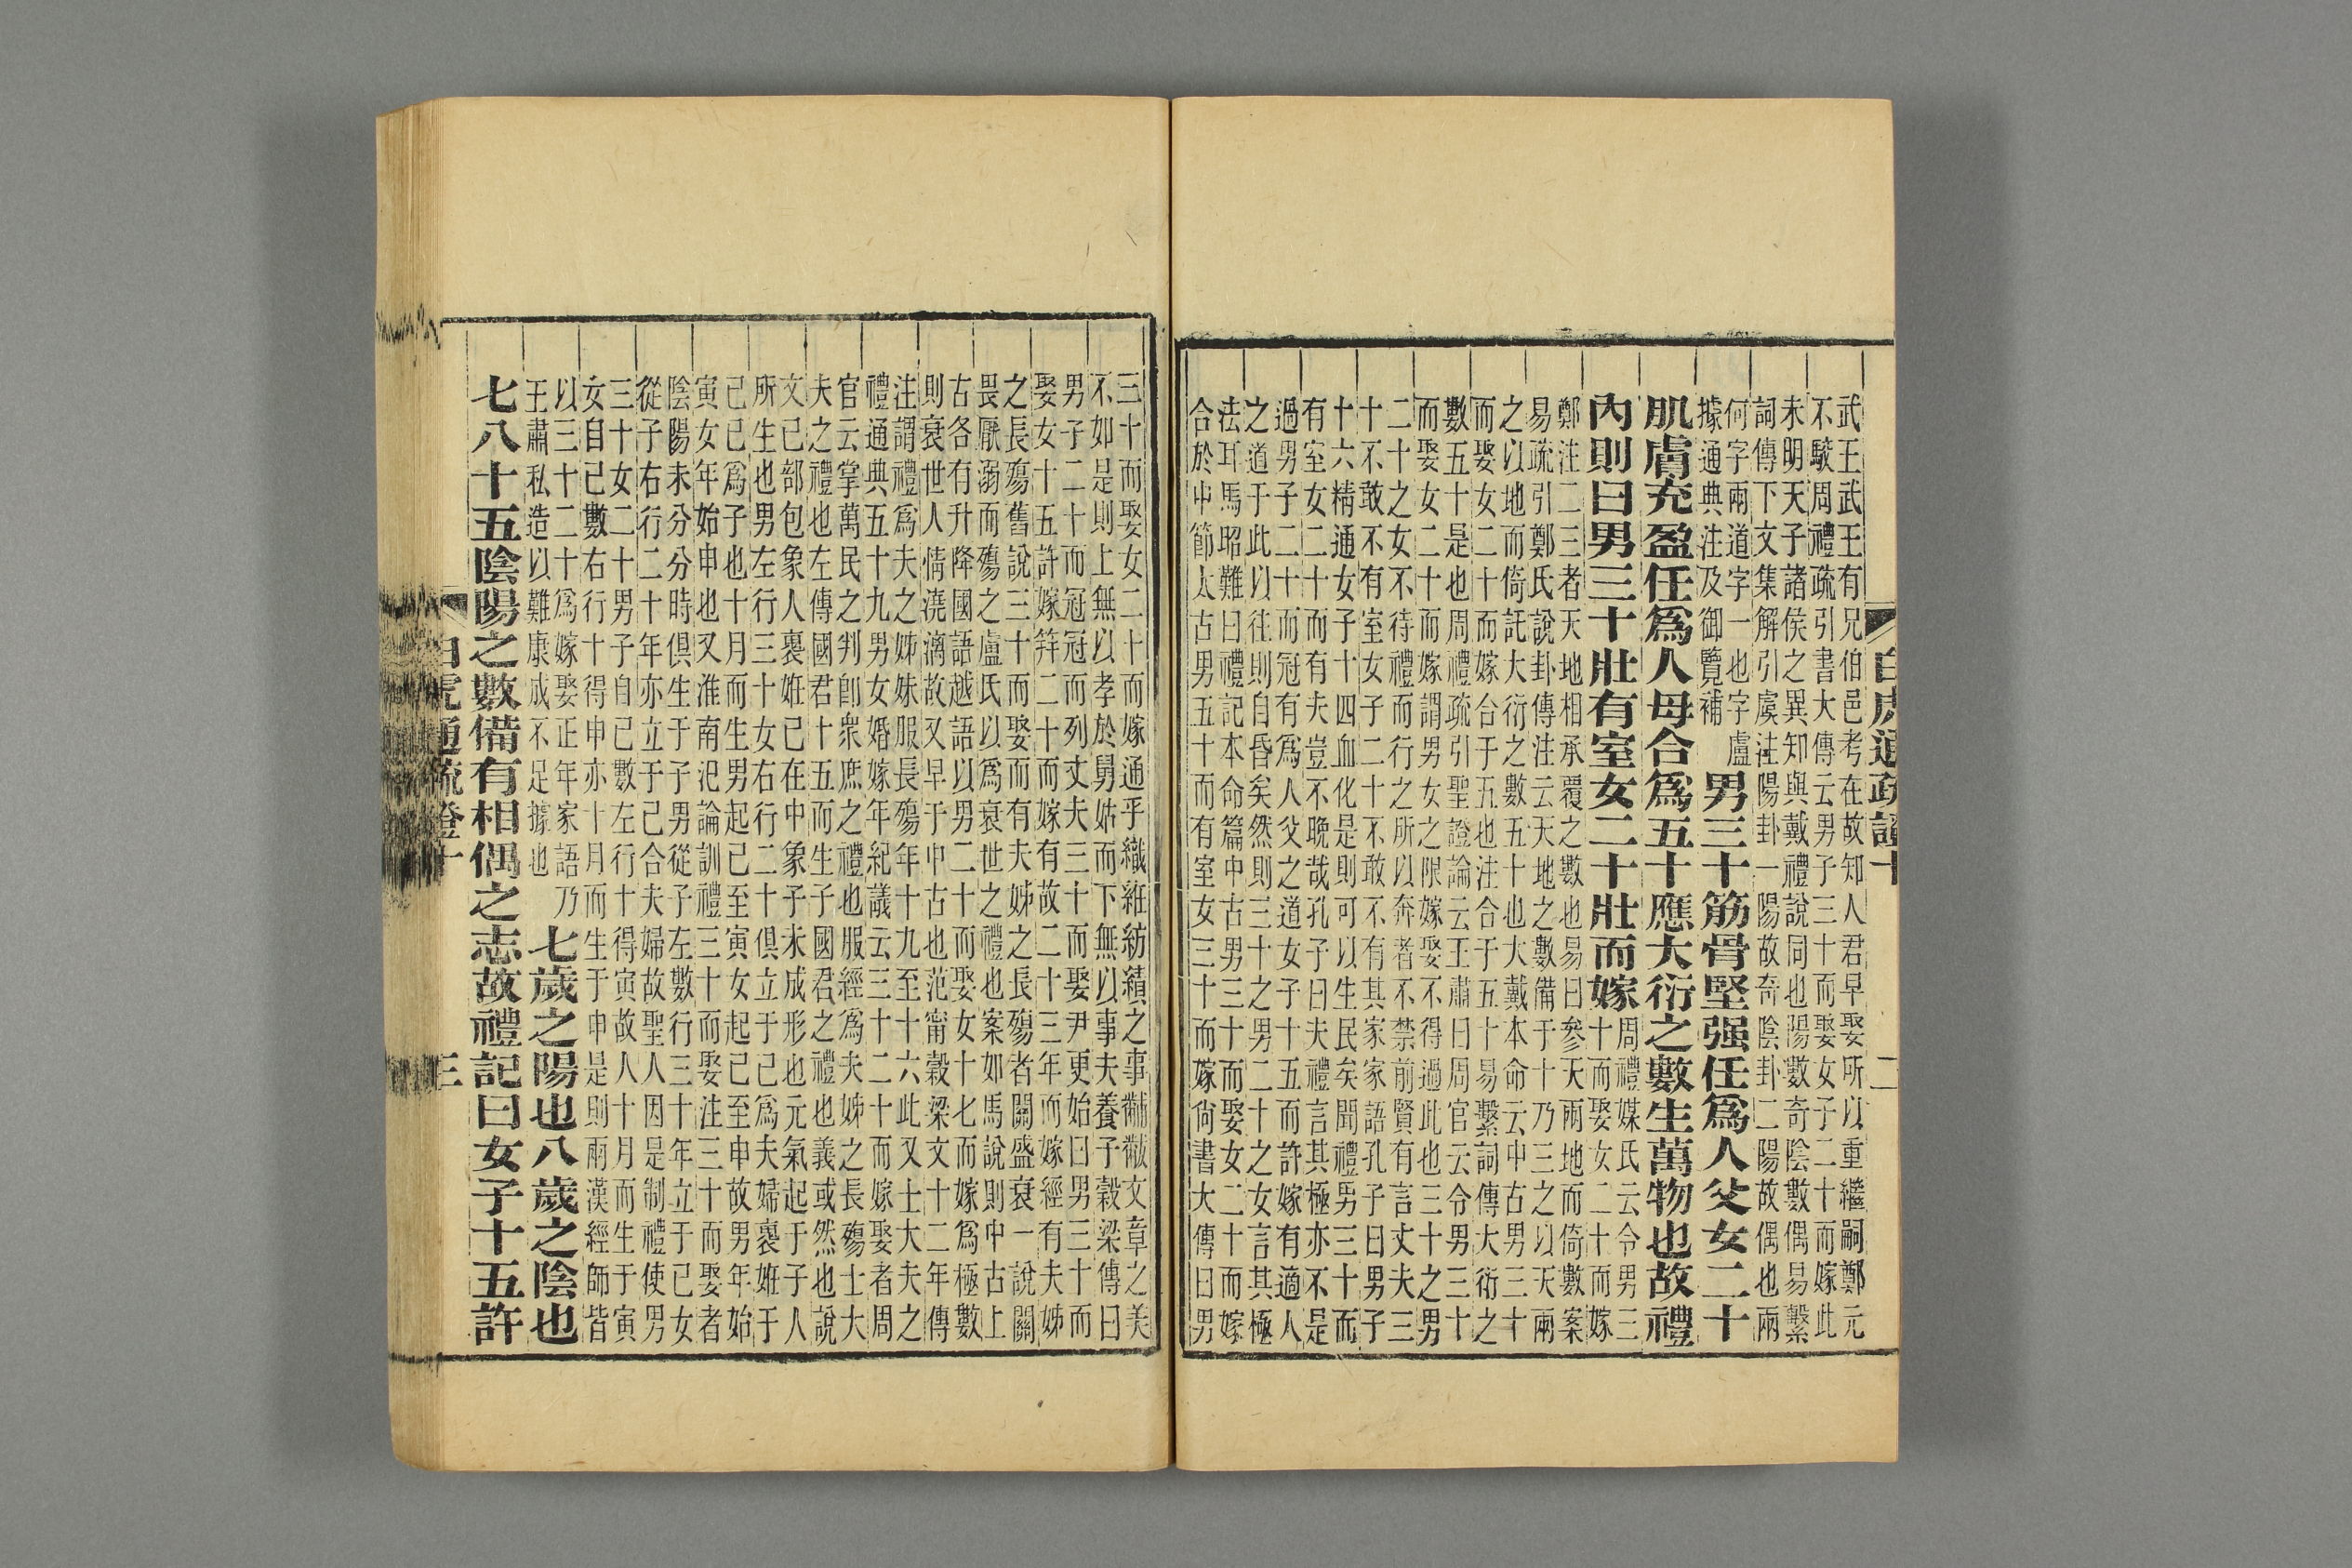 白虎通疏證十　二
武王武王有兄伯邑考在故知人君早娶所以重繼嗣鄭元
不駿周禮疏引書大傳云男子三十而娶女子二十而嫁此
未明天子諸侯之異知與戴禮說同也陽數奇陰數偶易繫
詞傳下文集解引虞注陽卦一陽故奇陰卦二陽故偶也兩
何字兩道字一也字盧
據通典注及御覽補
男三十筋骨堅强任爲人父女二十
肌膚充盈任爲人母合爲五十應大衍之數生萬物也故禮
內則曰男三十壯有室女二十壯而嫁
周禮媒氏云令男三
十而娶女二十而嫁
鄭注二三者天地相承覆之數也易曰參天兩地而倚數案
易疏引鄭氏說卦傳注云天地之數備于十乃三之以天兩
之以地而倚託大衍之數五十也大戴本命云中古男三十
而娶女二十而嫁合于五也注合于五十易繫詞傳大衍之
數五十是也周禮疏引聖證論云王肅曰周官云令男三十
而娶女二十而嫁謂男女之限嫁娶不得過此也三十之男
二十之女不待禮而行之所以奔者不禁前賢有言丈夫三
十不敢不有室女子二十不敢不有其家家語孔子曰男子
十六精通女子十四血化是則可以生民矣聞禮男三十而
有室女二十而有夫豈不晚哉孔子曰夫禮言其極亦不是
過男子二十而冠有爲人父之道女子十五而許嫁有適人
之道于此以往則自昏矣然則三十之男二十之女言其極
法耳馬昭難曰禮記本命篇中古男三十而娶女二十而嫁
合於中節太古男五十而有室女三十而嫁尙書大傳曰男
三十而娶女二十而嫁通乎織絍紡績之事黼黻文章之美
不如是則上無以孝於舅姑而下無以事夫養子穀梁傳曰
男子二十而冠冠而列丈夫三十而娶尹更始曰男三十而
娶女十五許嫁笄二十而嫁有故二十三年而嫁經有夫姊
之長殤舊說三十而娶而有夫姊之長殤者關盛衰一說關
畏厭溺而殤之盧氏以爲衰世之禮也案如馬說則中古上
古各有升降國語越語以男二十而娶女十七而嫁爲極數
則衰世人情澆漓故又早于中古也范甯穀梁文十二年傳
注謂禮爲夫之姊妹服長殤年十九至十六此又士大夫之
禮通典五十九男女婚嫁年紀議云三十二十而嫁娶者周
官云掌萬民之判卽衆庶之禮也服經爲夫姊之長殤士大
夫之禮也左傳國君十五而生子國君之禮也義或然也說
文巳部包象人裹妊巳在中象子未成形也元氣起于子人
所生也男左行三十女右行二十俱立于巳爲夫婦裹妊于
巳巳爲子也十月而生男起巳至寅女起巳至申故男年始
寅女年始申也又淮南氾論訓禮三十而娶注三十而娶者
陰陽未分分時俱生于子男從子左數行三十年立于巳女
從子右行二十年亦立于巳合夫婦故聖人因是制禮使男
三十女二十男子自巳數左行十得寅故人十月而生于寅
女自巳數右行十得申亦十月而生于申是則兩漢經師皆
以三十二十爲嫁娶正年家語乃
王肅私造以難康成不足據也
七歲之陽也八歲之陰也
七八十五陰陽之數備有相偶之志故禮記曰女子十五許
白虎通疏證十　三